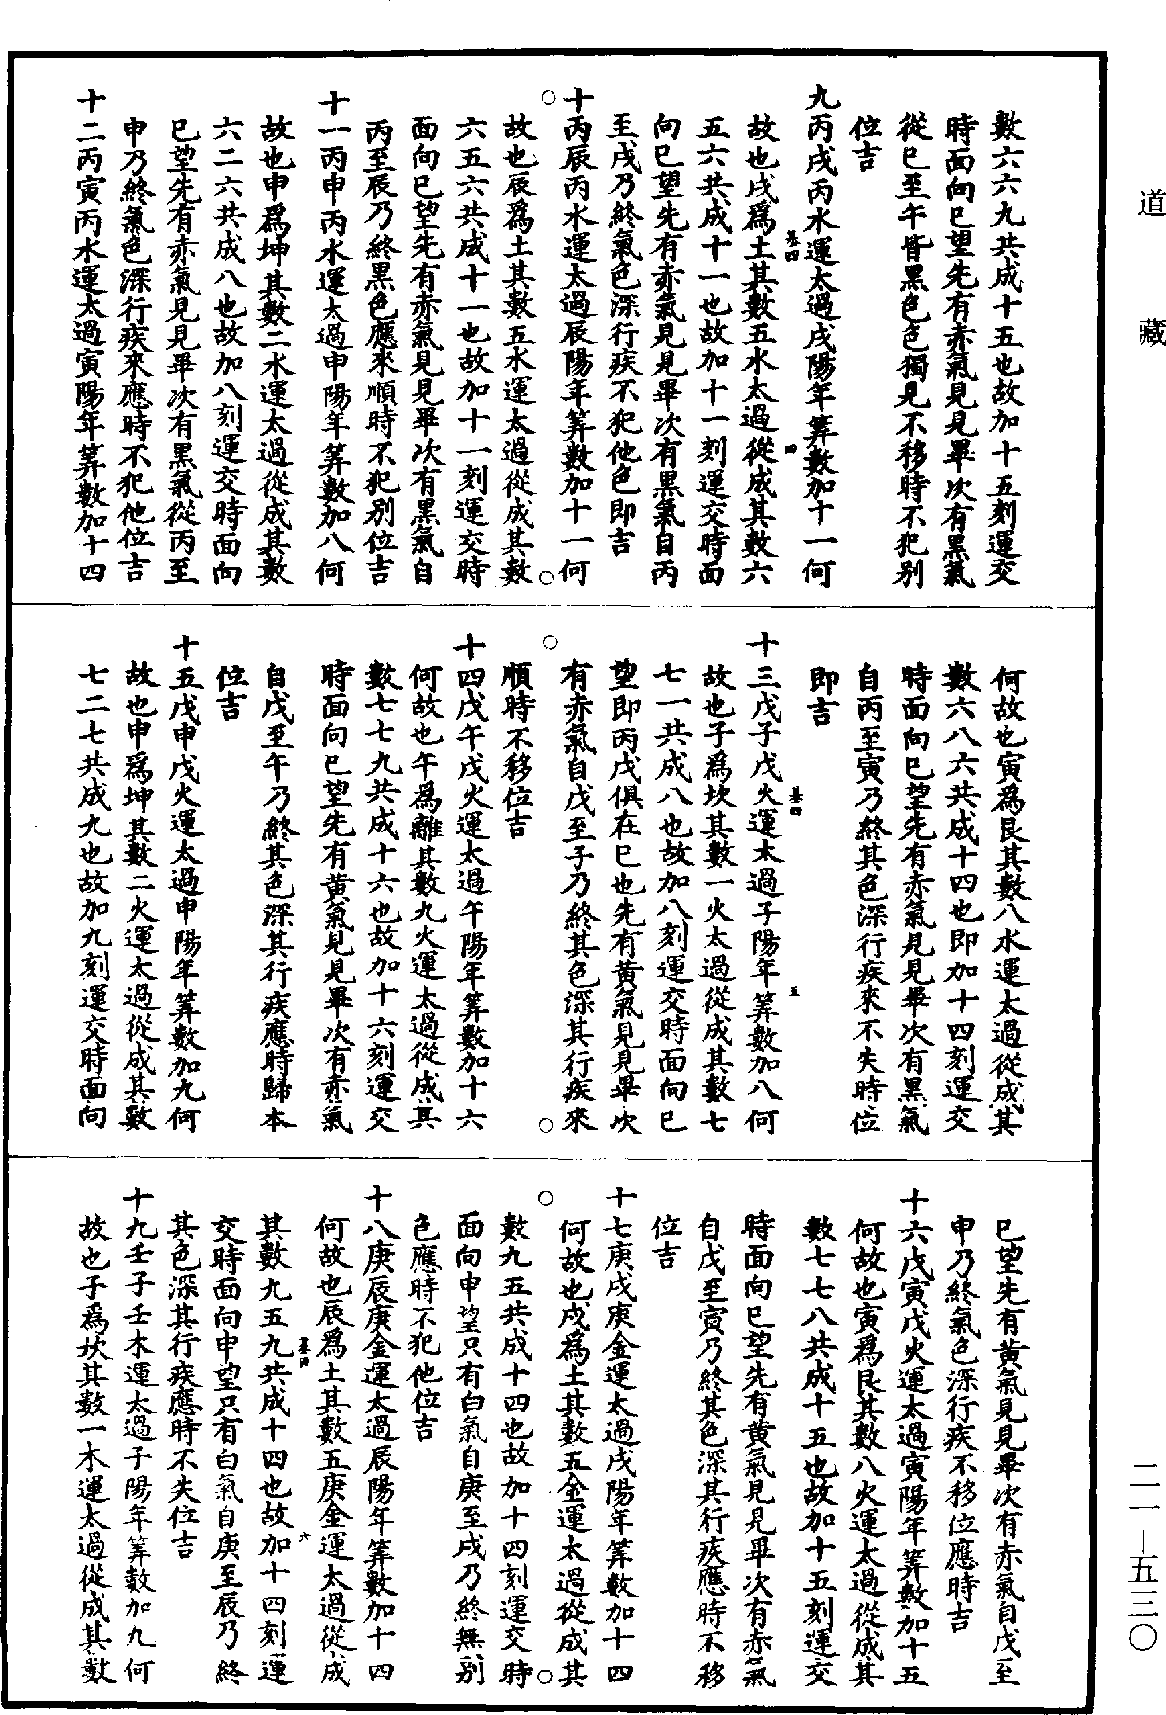 道藏
數六六九共成十五也故加十五刻運交
時面向巳望先有赤氣見見畢次有黑氣
從巳至午皆黑色色獨見不移時不犯別
位吉
九丙戌丙水運太過戌陽年筭數加十一何
故也戌爲土其數五水太過從成其數六
五六共成十一也故加十一刻運交時面
向巳望先有赤氣見見畢次有黑氣自丙
至戌乃終氣色深行疾不犯他色即吉
十丙辰丙水運太過辰陽年筭數加十一何
故也辰爲土其數五水運太過從成其數
六五六共成十一也故加十一刻運交時
面向巳望先有赤氣見見畢次有黑氣自
丙至辰乃終黑色應來順時不犯別位吉
十一丙申丙水運太過申陽年筭數加八何
故也申爲坤其數二水運太過從成其數
六二六共成八也故加八刻運交時面向
巳望先有赤氣見見畢次有黑氣從丙至
申乃終氣色深行疾來應時不犯他位吉
十二丙寅丙水運太過寅陽年筭數加十四
何故也寅爲艮其數八水運太過從成其
數六八六共成十四也即加十四刻運交
時面向巳望先有赤氣見見畢次有黑氣
自丙至寅乃終其色深行疾來不失時位
即吉
十三戊子戊火運太過子陽年筭數加八何
故也子爲坎其數一火太過從成其數七
七一共成八也故加八刻運交時面向巳
望即丙戊俱在巳也先有黃氣見見畢次
有赤氣自戊至子乃終其色深其行疾來
順時不移位吉
十四戊午戊火運太過午陽年筭數加十六
何故也午爲離其數九火運太過從成其
數七七九共成十六也故加十六刻運交
時面向巳望先有黃氣見見畢次有赤氣
自戊至午乃終其色深其行疾應時歸本
位吉
十五戊申戊火運太過申陽年筭數加九何
故也申爲坤其數二火運太過從成其數
七二七共成九也故加九刻運交時面向
巳望先有黃氣見見畢次有赤氣自戊至
申乃終氣色深行疾不移位應時吉
十六戊寅戊火運太過寅陽年筭數加十五
何故也寅爲艮其數八火運太過從成其
數七七八共成十五也故加十五刻運交
時面向巳望先有黃氣見見畢次有赤氣
自戊至寅乃終其色深其行疾應時不移
位吉
十七庚戌庚金運太過戌陽年筭數加十四
何故也戌爲土其數五金運太過從成其
數九五共成十四也故加十四刻運交時
面向申望只有白氣自庚至戌乃終無別
色應時不犯他位吉
十八庚辰庚金運太過辰陽年筭數加十四
何故也辰爲土其數五庚金運太過從成
其數九五九共成十四也故加十四刻運
交時面向申望只有白氣自庚至辰乃終
其色深其行疾應時不失位吉
十九壬子壬木運太過子陽年筭數加九何
故也子爲坎其數一木運太過從成其數
二一—五三〇